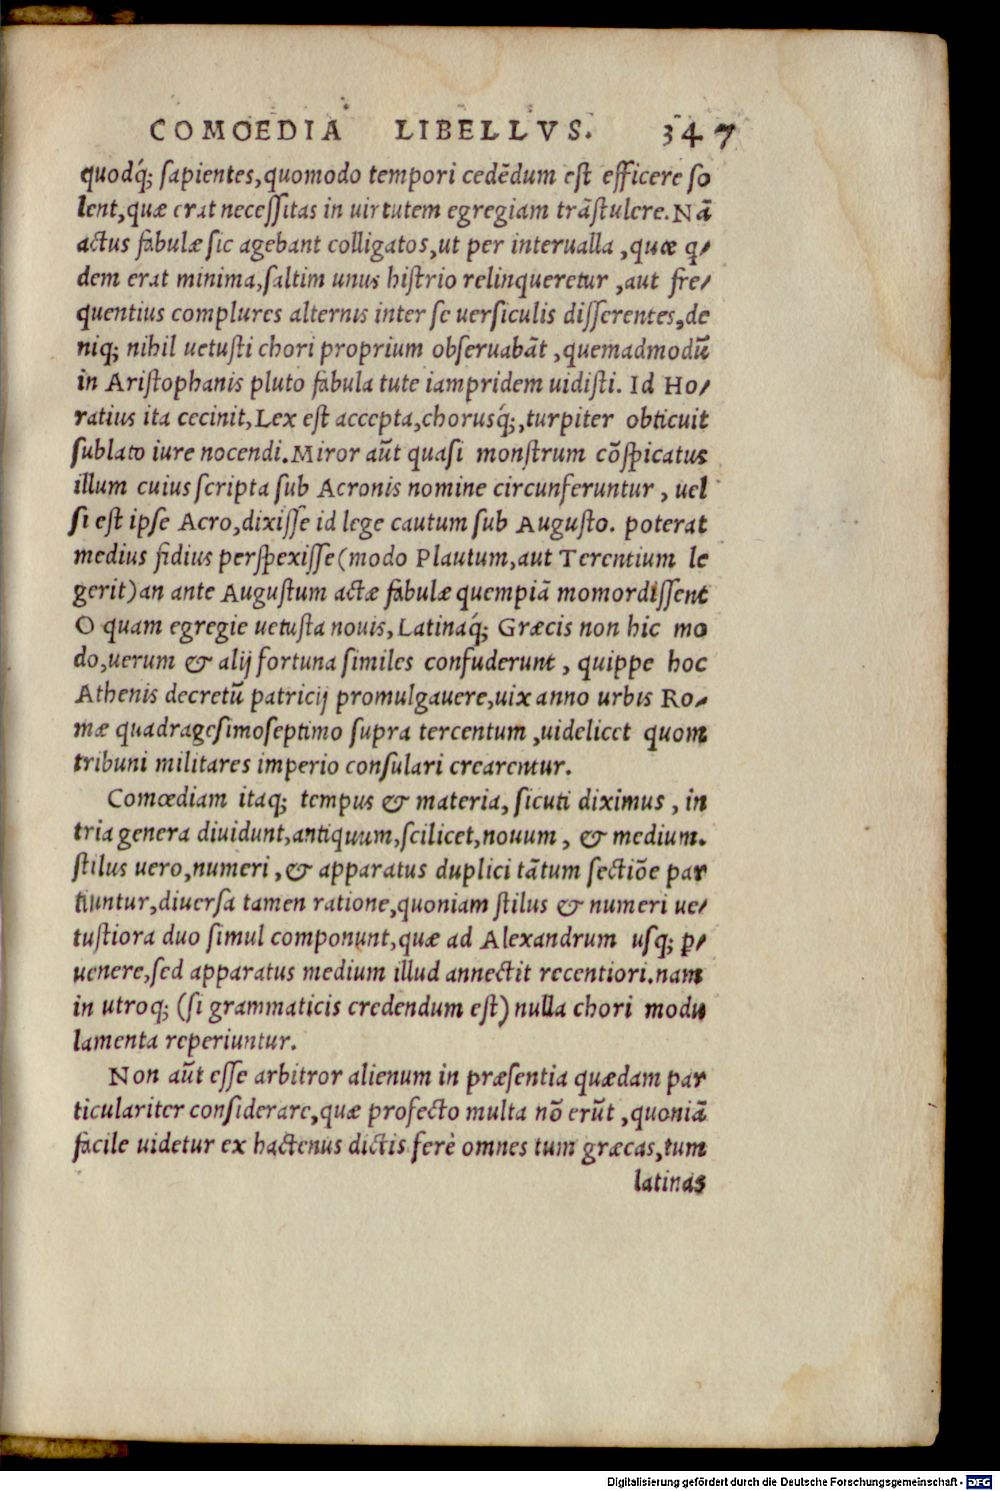 COMOEDIA LIBELLVS. 347
quodq́; sapientes,quomodo tempori cedēdum est efficere so
lent,quæ erat necessitas in uirtutem egregiam trãstulere.Nã
actus fabulæ sic agebant colligatos,ut per interualla ,quæ q-
dem erat minima,saltim unus histrio relinqueretur ,aut fre-
quentius complures alternis inter se uersiculis disserentes,de
niq; nihil uetusti chori proprium obseruabãt ,quemadmodũ
in Aristophanis pluto fabula tute iampridem uidisti. Id Ho-
ratius ita cecinit,Lex est accepta,chorusq́;,turpiter obticuit
sublato iure nocendi.Miror aũt quasi monstrum cõspicatus
illum cuius scripta sub Acronis nomine circunferuntur , uel
si est ipse Acro,dixisse id lege cautum sub Augusto. poterat
medius fidius perspexisse(modo Plautum,aut Terentium le
gerit)an ante Augustum actæ fabulæ quempiã momordissent
O quam egregie uetusta nouis,Latinaq́; Græcis non hic mo
do,uerum & alij fortuna similes confuderunt , quippe hoc
Athenis decretũ patricij promulgauere,uix anno urbis Ro-
mæ quadragesimoseptimo supra tercentum ,uidelicet quom
tribuni militares imperio consulari crearentur.
Comœdiam itaq; tempus & materia, sicuti diximus , in
tria genera diuidunt,antiquum,scilicet,nouum , & medium.
stilus uero,numeri ,& apparatus duplici tãtum sectiõe par
tiuntur,diuersa tamen ratione,quoniam stilus & numeri ue-
tustiora duo simul componunt,quæ ad Alexandrum usq; p̱-
uenere,sed apparatus medium illud annectit recentiori.nam
in utroq; (si grammaticis credendum est) nulla chori modu
lamenta reperiuntur.
Non aũt esse arbitror alienum in præsentia quædam par
ticulariter considerare,quæ profecto multa nõ erũt ,quoniã
facile uidetur ex hactenus dictis ferè omnes tum græcas,tum
latinas
Digitalisierung gefördert durch die Deutsche Forschungsgemeinschaft - DFG